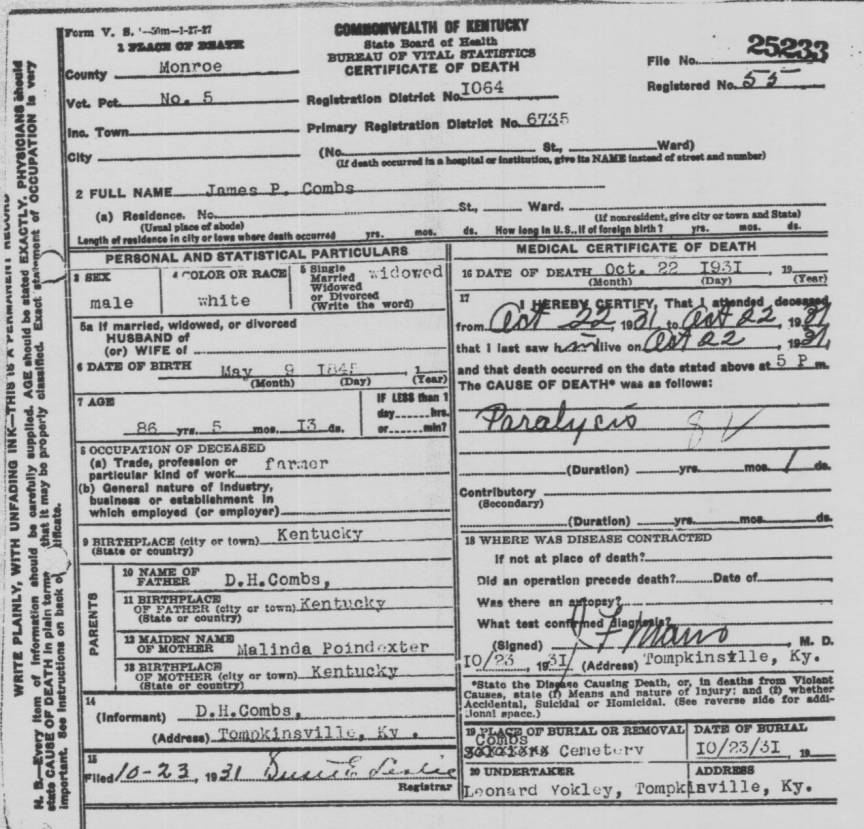 Form V. S. 1-50m-1-27-27
COMMONWEALTH OF KENTUCKY
State Board of Health
BUREAU OF VITAL STATISTICS
CERTIFICATE OF DEATH
File No. 25233
Registered No. 55
1 PLACE OF DEATH
County Monroe
Vot. Pct. No. 5
Registration District No. 1064
Inc. Town
Primary Registration District No. 6735
City
(No. St., Ward)
(If death occurred in a hospital or institution, give its NAME instead of street and number)
2 FULL NAME James P. Combs
(a) Residence. No. St., Ward.
(Usual place of abode)
(If nonresident, give city or town and State)
Length of residence in city or town where death occurred yrs. mos. ds. How long in U.S., if of foreign birth? yrs. mos. ds.
PERSONAL AND STATISTICAL PARTICULARS
3 SEX
male
4 COLOR OR RACE
white
5 Single
Married
Widowed
or Divorced
(Write the word)
widowed
5a If married, widowed, or divorced
HUSBAND of
(or) WIFE of
6 DATE OF BIRTH May 9 1845, 1
(Month) (Day) (Year)
7 AGE
86 yrs. 5 mos. 13 ds.
IF LESS than 1
day hrs.
or min?
8 OCCUPATION OF DECEASED
(a) Trade, profession or
particular kind of work farmer
(b) General nature of industry,
business or establishment in
which employed (or employer)
9 BIRTHPLACE (city or town) Kentucky
(State or country)
PARENTS
10 NAME OF
FATHER D.H.Combs,
11 BIRTHPLACE
OF FATHER (city or town) Kentucky
(State or country)
12 MAIDEN NAME
OF MOTHER Malinda Poindexter
13 BIRTHPLACE
OF MOTHER (city or town) Kentucky
(State or country)
14
(Informant) D.H.Combs,
(Address) Tompkinsville, Ky .
15
Filed 10-23, 1931 Susie E Leslie
Registrar
MEDICAL CERTIFICATE OF DEATH
16 DATE OF DEATH Oct. 22 1931, 19
(Month) (Day) (Year)
17 I HEREBY CERTIFY, That I attended deceased
from Oct 22 1931 to Oct 22, 1931
that I last saw him alive on Oct 22, 1931,
and that death occurred on the date stated above at 5 P m.
The CAUSE OF DEATH* was as follows:
Paralycis 82
(Duration) yrs. mos. 1 ds.
Contributory
(Secondary)
(Duration) yrs. mos. ds.
18 WHERE WAS DISEASE CONTRACTED
If not at place of death?
Did an operation precede death? Date of
Was there an autopsy?
What test confirmed diagnosis?
(Signed) M. D.
10/23, 1931 (Address) Tompkinsville, Ky.
*State the Disease Causing Death, or, in deaths from Violent
Causes, state (1) Means and nature of Injury: and (2) whether
Accidental, Suicidal or Homicidal. (See reverse side for addi-
tional space.)
19 PLACE OF BURIAL OR REMOVAL
Combs
Cemetery
DATE OF BURIAL
10/23/31, 19
20 UNDERTAKER
ADDRESS
Leonard Yokley, Tompkinville, Ky.
WRITE PLAINLY, WITH UNFADING INK—THIS IS A PERMANENT RECORD
N. B.—Every item of information should be carefully supplied. AGE should be stated EXACTLY. PHYSICIANS should
state CAUSE OF DEATH in plain terms that it may be properly classified. Exact statement of OCCUPATION is very
important. See instructions on back of